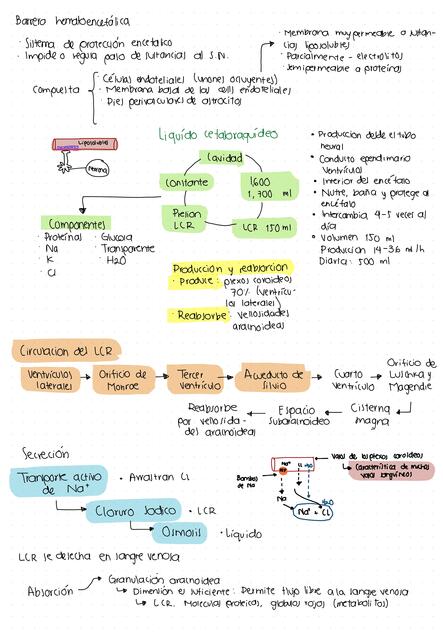 Barrera hematoencefálica
· Sistema de protección encefálico
· Impide o regula paso de sustancias al S.N.
· Membrana muy permeable a sustan-
cias liposolubles
· Parcialmente - electrolitos
· Semipermeable a proteínas
Compuesta
· Células endoteliales (uniones ocluyentes)
· Membrana basal de las cells endoteliales
· Pies perivasculares de astrocitos
Liposolubles
Neurona
Líquido cefaloraquídeo
Cavidad
1,600
1,700 ml
LCR 150 ml
Presion
LCR
Constante
Componentes
· Proteínas
· Na
· K
· Cl
· Glucosa
· Transparente
· H2O
· Produccion desde el tubo
neural
· Conducto ependimario
Ventrículos
· Interior del encéfalo
· Nutre, baña y protege al
encéfalo
· Intercambia 4-5 veces al
día
· Volumen 150 ml
Produccion 14-36 ml/h
Diaria: 500 ml
Produccion y reabsorcion
· Produce: plexos coroideos
70% (ventrícu-
los laterales)
· Reabsorbe: vellosidades
aracnoideas
Circulacion del LCR
Ventrículos
laterales
Orificio de
Monroe
Tercer
Ventrículo
Acueducto de
Silvio
Cuarto
Ventrículo
Orificio de
Lushnka y
Magendie
Cisterna
magna
Espacio
Subaracnoideo
Reabsorbe
por vellosida-
des aracnoideas
Secreción
Transporte activo
de Na+
· Arrastran Cl
Cloruro Sódico
· LCR
Osmosis
· Líquido
Bombas
de Na
Na+
Cl
H2O
Na
H2O
Na+ + Cl
Vasos de los plexos coroideos
Característica de muchos
vasos sanguíneos
LCR se desecha en sangre venosa
Absorción
Granulación aracnoidea
Dimensión es suficiente: Permite flujo libre a la sangre venosa
LCR, Moleculas proteicas, globulos rojos (metabolitos)